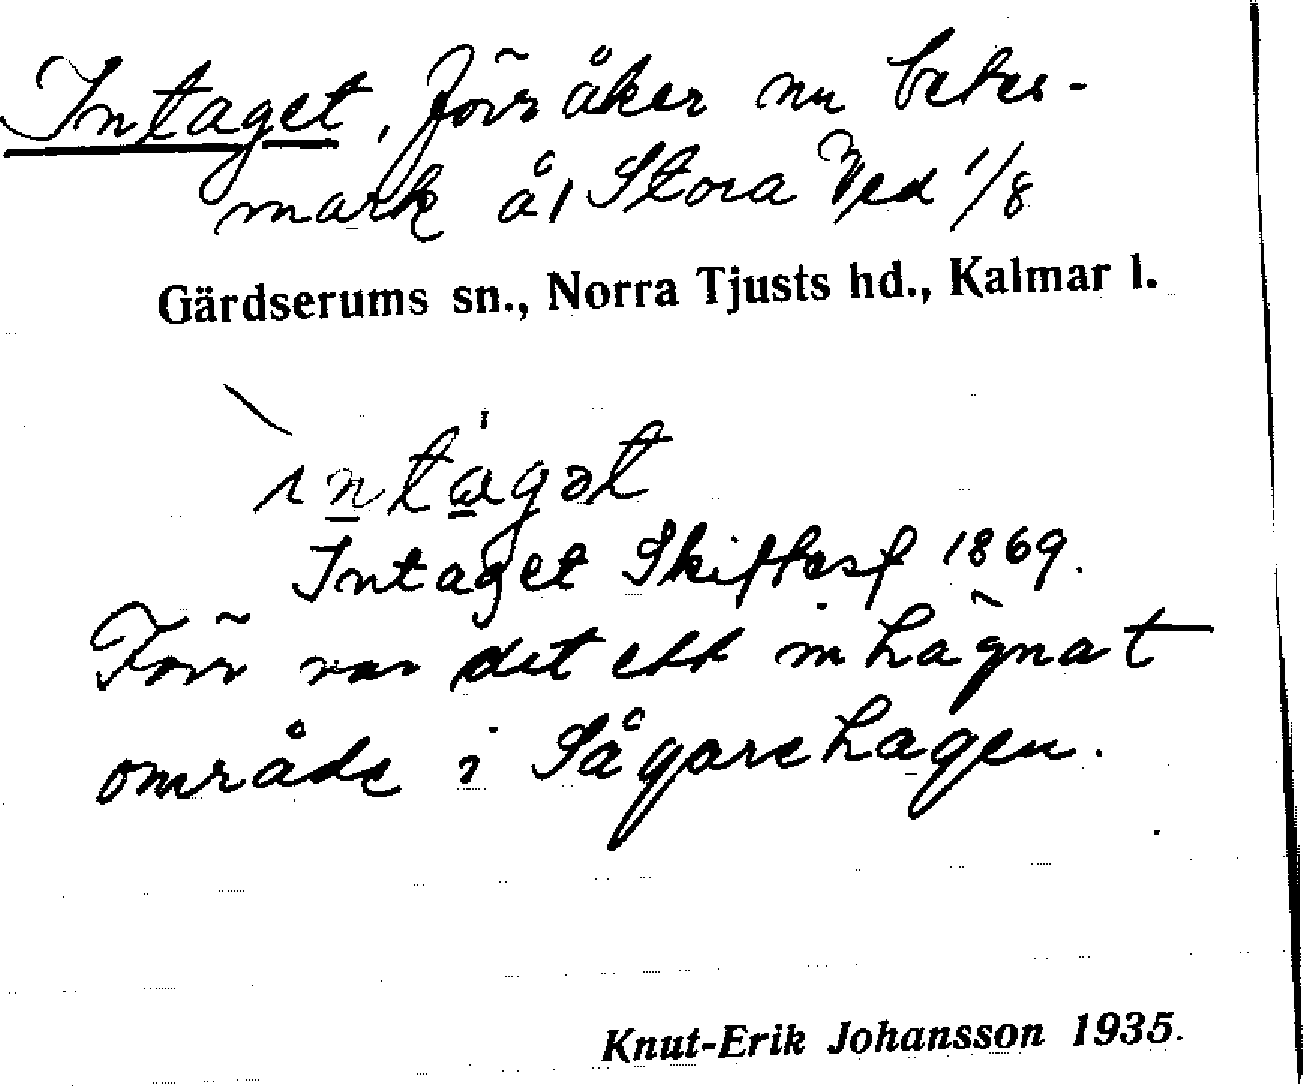 Intaget, förr åker nu betes-
mark å1 Stora Ved 1/8
Gärdserums sn., Norra Tjusts hd., Kalmar l.
ıntagət
Intaget Skiftesf 1869.
Förr var det ett inhägnat
område i Sågarehagen.
Knut-Erik Johansson 1935.